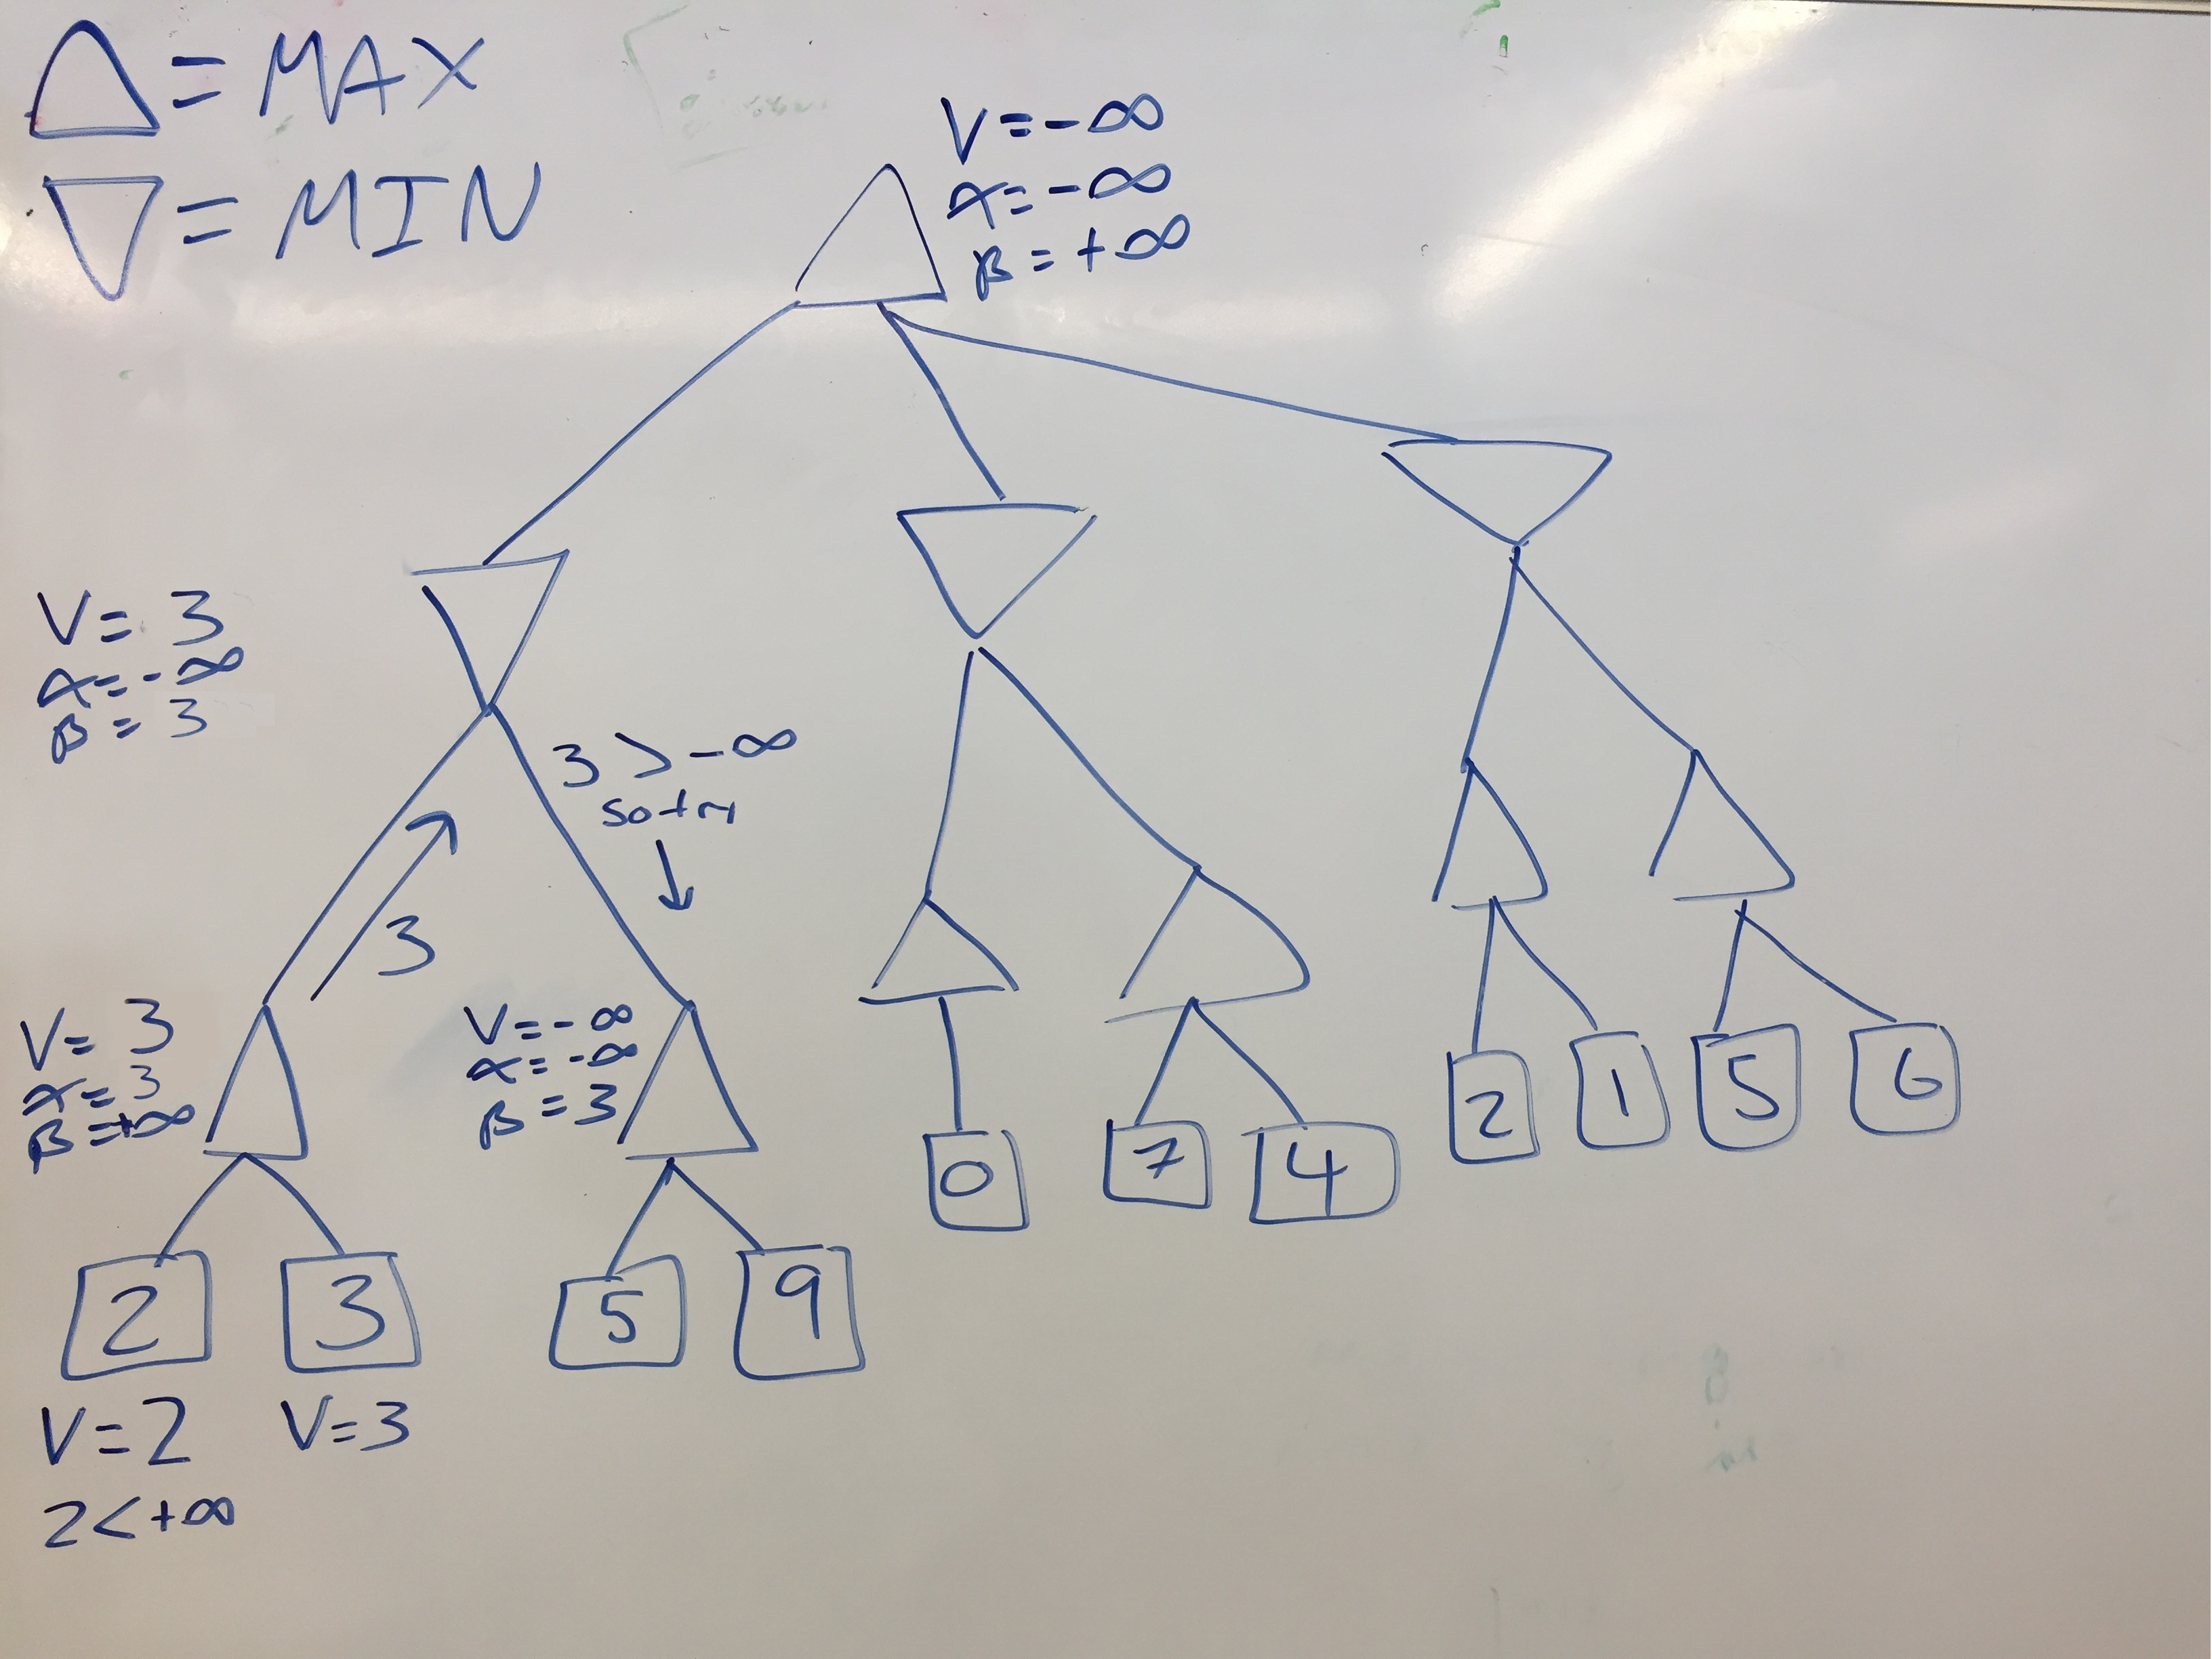 △ = MAX
▽ = MIN
V = -∞
α = -∞
β = +∞
V = 3
α = -∞
β = 3
3 > -∞
so try
↓
3
V = 3
α = 3
β = +∞
V = -∞
α = -∞
β = 3
2 1 5 6
0 7 4
2 3 5 9
V = 2 V = 3
2 < +∞